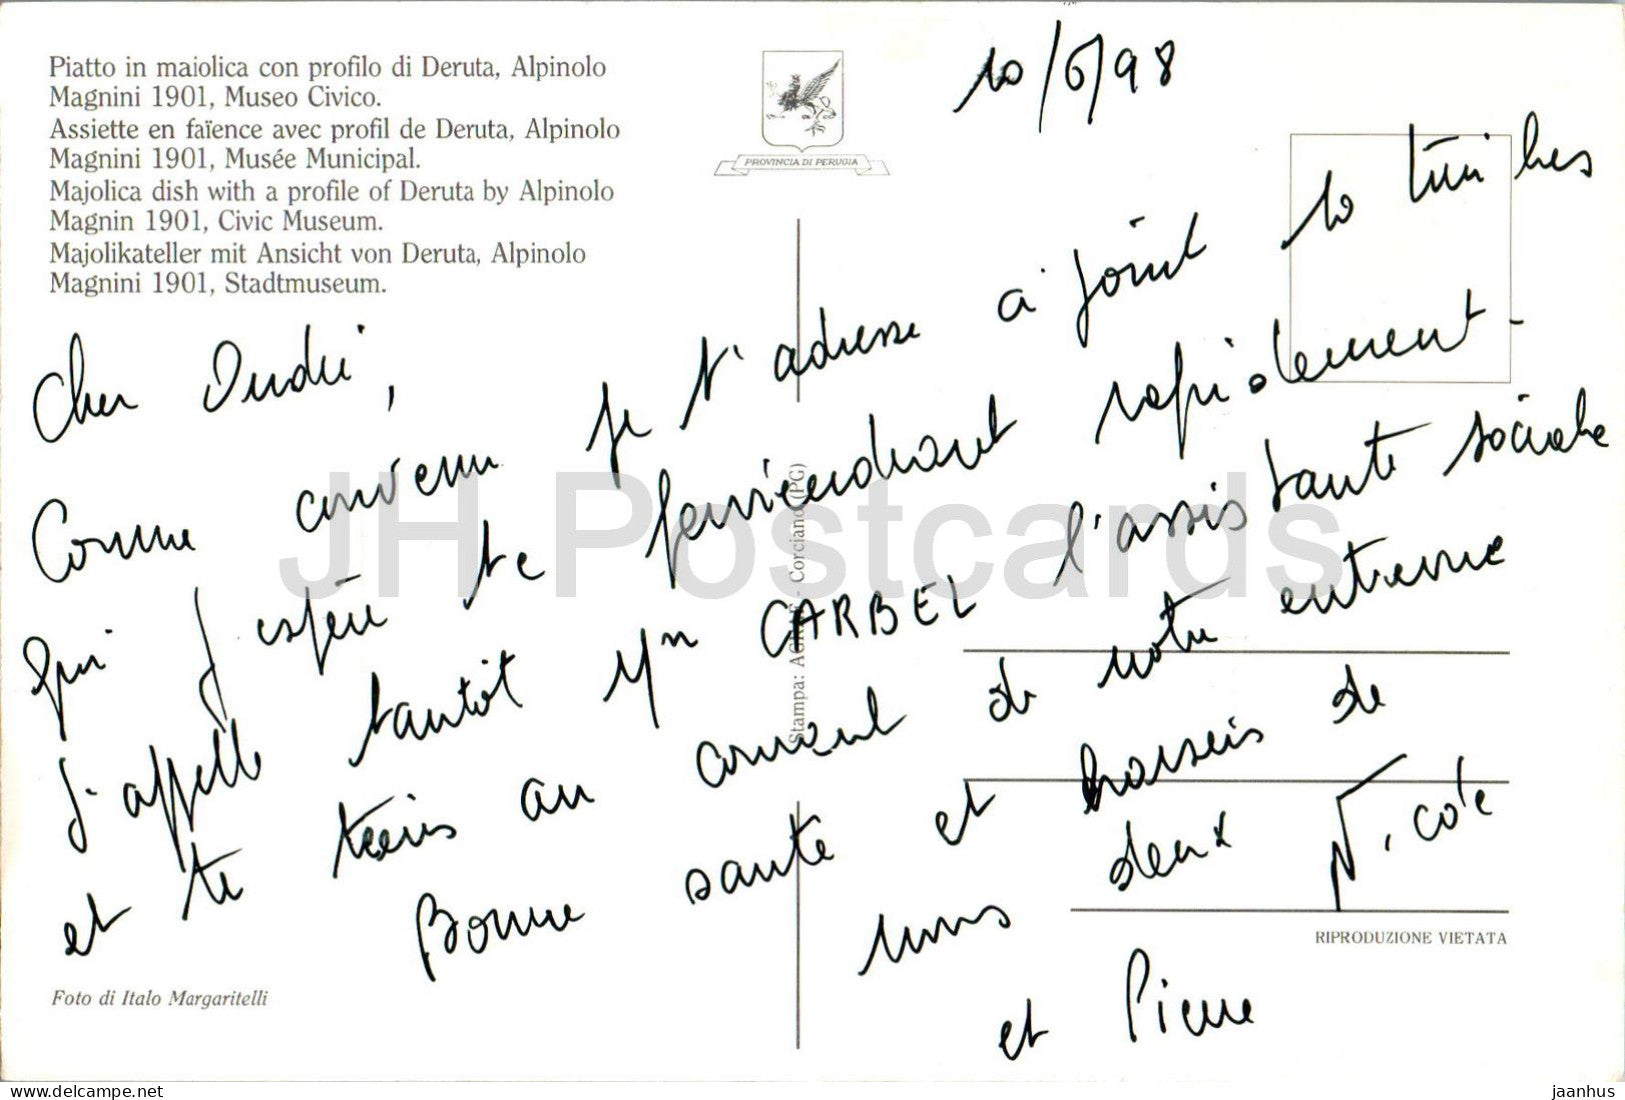 Piatto in maiolica con profilo di Deruta, Alpinolo
Magnini 1901, Museo Civico.
Assiette en faïence avec profil de Deruta, Alpinolo
Magnini 1901, Musée Municipal.
Majolica dish with a profile of Deruta by Alpinolo
Magnin 1901, Civic Museum.
Majolikateller mit Ansicht von Deruta, Alpinolo
Magnini 1901, Stadtmuseum.
PROVINCIA DI PERUGIA
10/6/98
Cher
Comme convenu je t'adresse ci joint 10 timbres
qui j'espère te parviendront rapidement.
J'appelle tantôt Mn CARBEL l'assistante sociale
et te tiens au courant de notre entrevue
Bonne santé et baisers de
nous deux Nicole
et Pierre
Foto di Italo Margaritelli
Stampa: - Corciano (PG)
RIPRODUZIONE VIETATA
JH Postcards
jaanhus